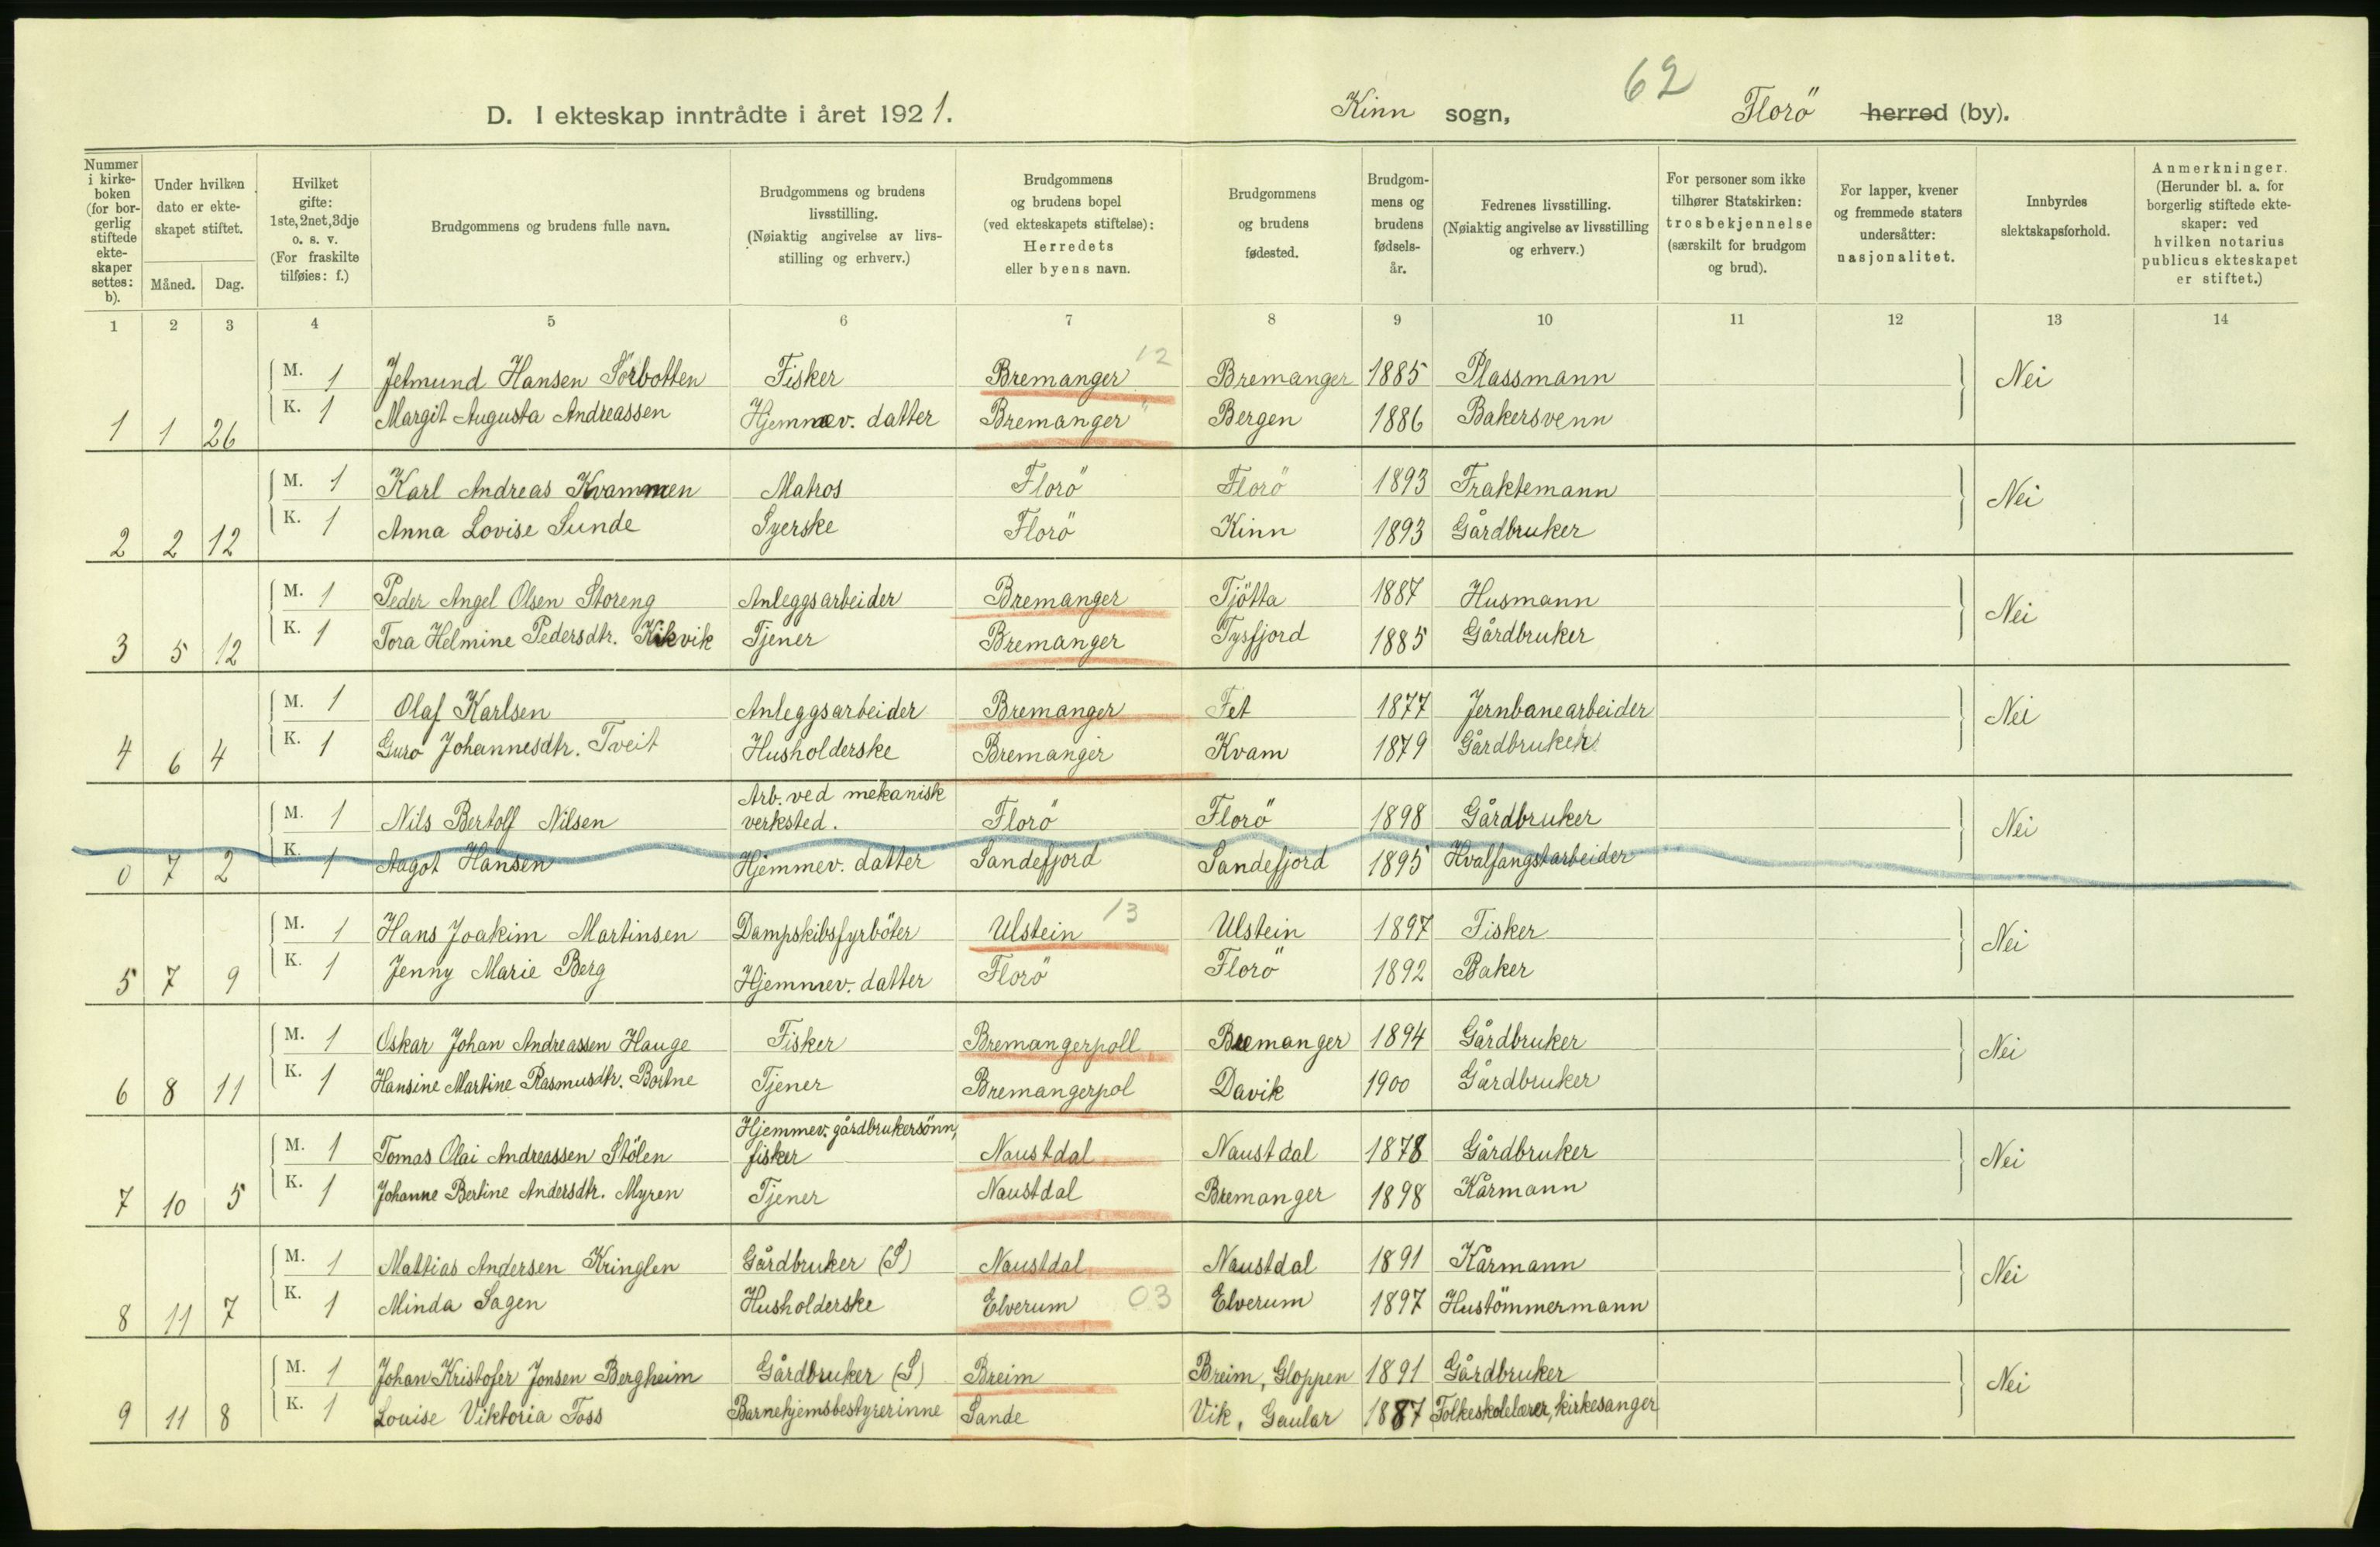 62
D. I ekteskap inntrådte i året 1921. Kinn sogn, Florö herred (by).
Nummer i kirkeboken (for borgerlig stiftede ekteskaper settes: b).
Under hvilken dato er ekteskapet stiftet.
Måned. Dag.
Hvilket gifte: 1ste, 2net, 3dje o. s. v. (For fraskilte tilføies: f.)
Brudgommens og brudens fulle navn.
Brudgommens og brudens livsstilling. (Nøiaktig angivelse av livsstilling og erhverv.)
Brudgommens og brudens bopel (ved ekteskapets stiftelse): Herredets eller byens navn.
Brudgommens og brudens fødested.
Brudgommens og brudens fødselsår.
Fedrenes livsstilling. (Nøiaktig angivelse av livsstilling og erhverv.)
For personer som ikke tilhører Statskirken: trosbekjennelse (særskilt for brudgom og brud).
For lapper, kvener og fremmede staters undersåtter: nasjonalitet.
Innbyrdes slektskapsforhold.
Anmerkninger. (Herunder bl. a. for borgerlig stiftede ekteskaper: ved hvilken notarius publicus ekteskapet er stiftet.)
1 2 3 4 5 6 7 8 9 10 11 12 13 14
M. 1 Jetmund Hansen Sörbotten Fisker Bremanger 12 Bremanger 1885 Plassmann Nei
1 1 26 K. 1 Margit Augusta Andreassen Hjemmev. datter Bremanger " Bergen 1886 Bakersvenn
M. 1 Karl Andreas Kvammen Matros Florö Florö 1893 Fraktemann Nei
2 2 12 K. 1 Anna Lovise Sunde Syerske Florö Kinn 1893 Gårdbruker
M. 1 Peder Angel Olsen Storeng Anleggsarbeider Bremanger Tjötta 1887 Husmann Nei
3 5 12 K. 1 Tora Helmine Pedersdtr. Kikvik Tjener Bremanger Tysfjord 1885 Gårdbruker
M. 1 Olaf Karlsen Anleggsarbeider Bremanger Fet 1877 Jernbanearbeider Nei
4 6 4 K. 1 Guro Johannesdtr. Tveit Husholderske Bremanger Kvam 1879 Gårdbruker
M. 1 Nils Bertolf Nilsen Arb. ved mekanisk verksted. Florö Florö 1898 Gårdbruker Nei
0 7 2 K. 1 Aagot Hansen Hjemmev. datter Sandefjord Sandefjord 1895 Hvalfangstarbeider
M. 1 Hans Joakim Martinsen Dampskibsfyrböter Ulstein 13 Ulstein 1897 Fisker Nei
5 7 9 K. 1 Jenny Marie Berg Hjemmev. datter Florö Florö 1892 Baker
M. 1 Oskar Johan Andreassen Hauge Fisker Bremangerpoll Bremanger 1894 Gårdbruker Nei
6 8 11 K. 1 Hansine Martine Rasmusdtr. Bortne Tjener Bremangerpol Davik 1900 Gårdbruker
M. 1 Tomas Olai Andreassen Stölen Hjemmev. gårdbrukersönn, fisker Naustdal Naustdal 1878 Gårdbruker Nei
7 10 5 K. 1 Johanne Bertine Andersdtr. Myren Tjener Naustdal Bremanger 1898 Kårmann
M. 1 Mattias Andersen Kringlen Gårdbruker (S) Naustdal Naustdal 1891 Kårmann Nei
8 11 7 K. 1 Minda Sagen Husholderske Elverum 03 Elverum 1897 Hustömmermann
M. 1 Johan Kristofer Jonsen Bergheim Gårdbruker (S) Breim Breim, Gloppen 1891 Gårdbruker Nei
9 11 8 K. 1 Louise Viktoria Foss Barnehjemsbestyrerinne Sande Vik, Gaular 1887 Folkeskolelærer, kirkesanger